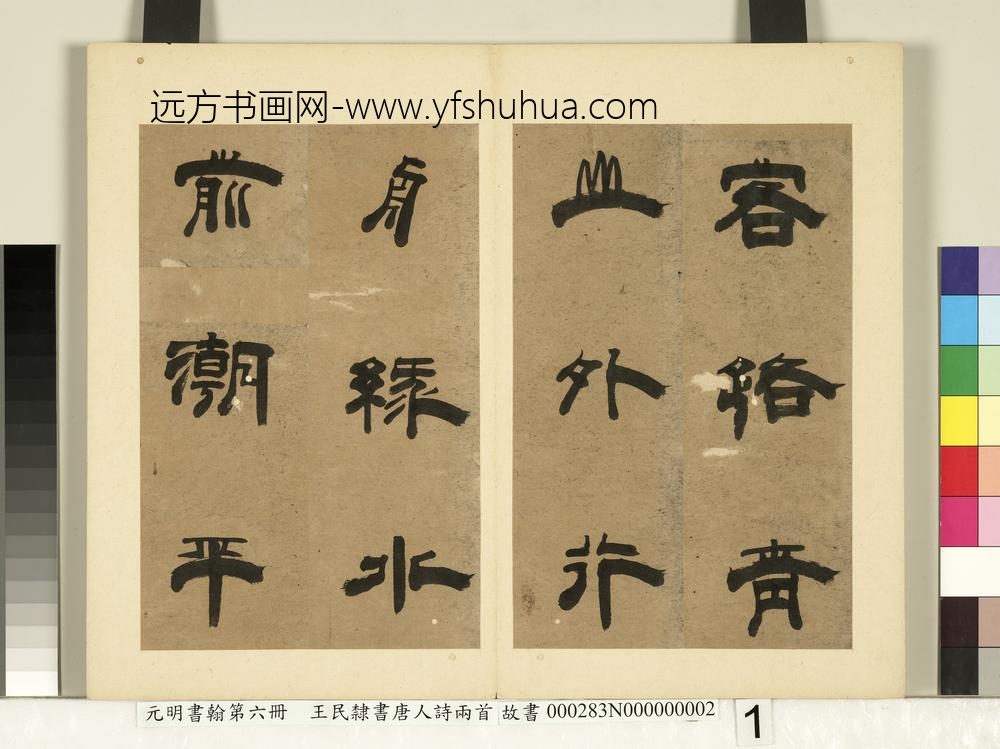 远方书画网-www.yfshuhua.com
客路青
山外行
舟綠水
前潮平
元明書翰第六冊 王民隸書唐人詩兩首 故書 000283N000000002
1